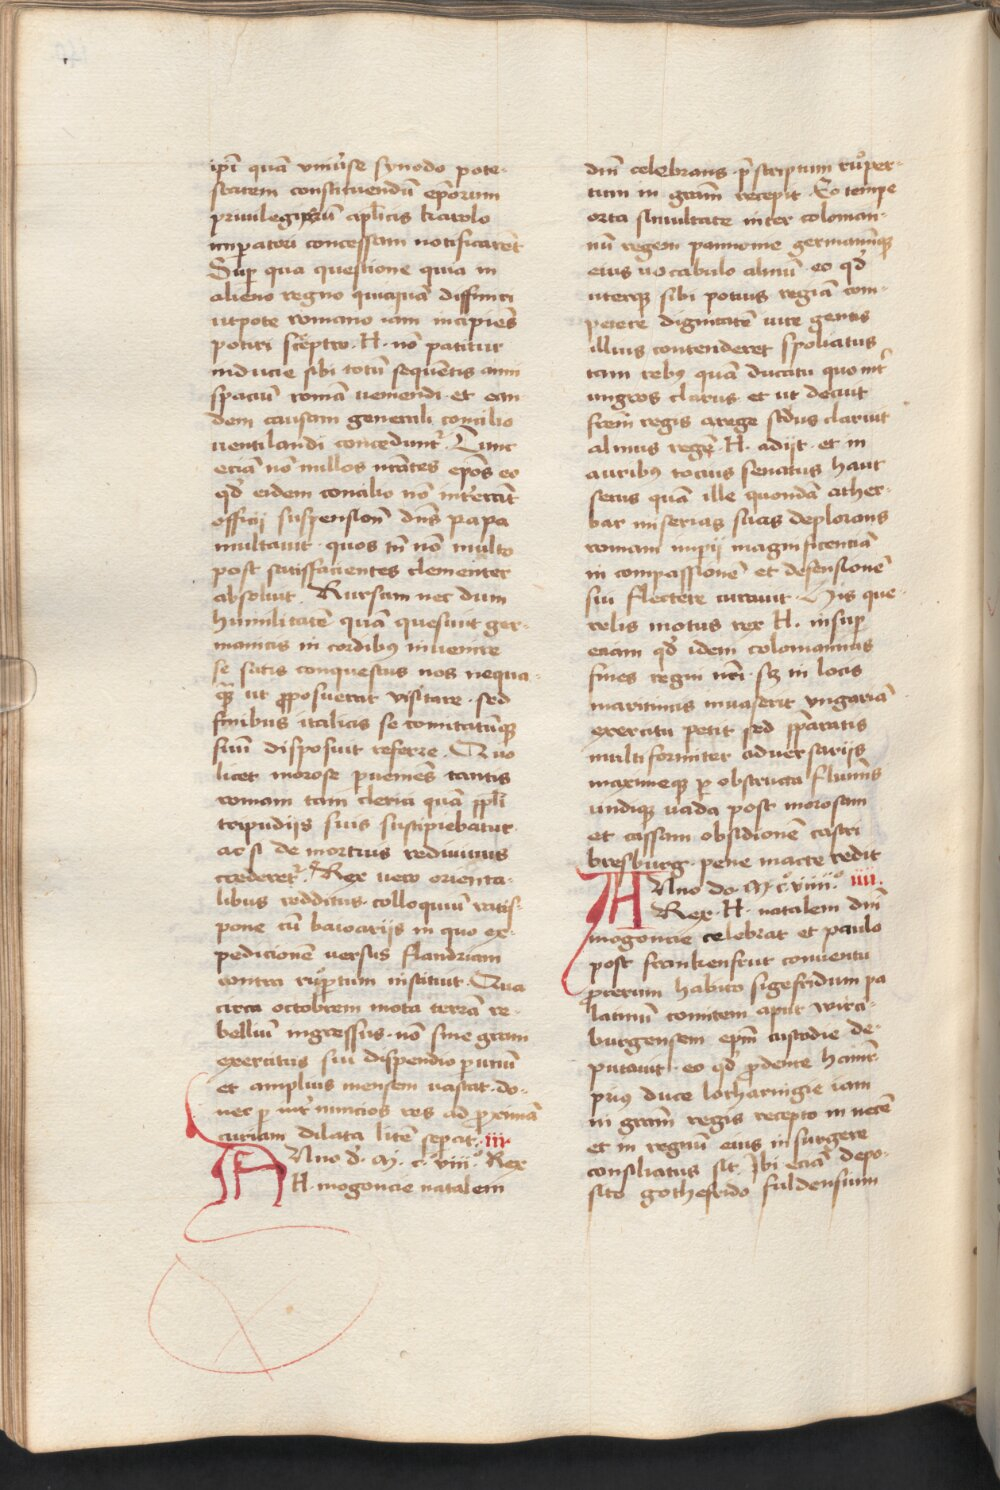 ip̄i quā vniu̕se synodo pote-
statem constituendū ep̄orum
priuilegiorū apl̄icis karolo
imp̄atori concessam notificaret
Sup̱ qua questione quia in
alieno regno quicquā diffiniri
utpote romano iam incipiēs
potiri sceptro · H · nō patitur
inducie sibi totū sequētis anni
spaciū romā ueniendi et ean
dem causam generali concilio
uentilandi concedunt̕ · Tunc
eciā nō nullos nr̄ates ep̄os eo
qd̕ eidem concilio nō int̕erāt
officij suspensione dn̄s papa
multauit · quos tn̄ nō multo
post satisfacientes clementer
absoluit · Rursam nec dum
humilitatē quā quesiuit ger-
manicis in cordibꝫ inuenire
se satis conquestus nos nequa-
qꝫ ut p̱posuerat visitare · sed
finibus italicis se comitatūqꝫ
suū disposuit referre · Quo
licet morose p̱ueniēs tantis
romam tam cleri quā pp̄li
tripudijs suis suscipiebatur
ac si de mortuis rediuiuus
crederet̕ · Rex uero orienta-
libus redditus · colloquiū ratis-
pone cū baioarijs in quo ex-
pedicionē uersus flandriam
contra rup̱tum instituit · Qua
circa octobrem mota terrā re-
belliū ingressus · nō sine graui
exercitus sui dispendio p̱ unū
et amplius mensem uastat · do-
nec p̱ int̕nuncios res ad p̱ximā
curiam dilata litē sepcit · iii
ANno d̕ · M · c · viii° · Rex
H · mogoncie natalem
dn̄i celebrans · p̄scriptum růper-
tum in grām recepit · Eo tempe
orta simultate inter coloman-
nū regem pannonie germanūqꝫ
eius uocabulo almū · eo qd̕
uterqꝫ sibi potius regiā com-
petere dignitatē iure gentis
illius contenderet spoliatus
tam rebꝫ quā ducatu quo int̕
ungros clarus · et ut decuit
frēm regis atqꝫ sed̕us claruit
almus regē · H · adijt · et in
auribꝫ tocius senatus haut
secus quā ille quondā ather-
bar miserias suas deplorans
romani imp̱ij magnificentiā
in compassionē et defensionē
sui flectere curauit · His que-
relis motus rex H · insup̱
eciam qd̕ idem colomannus
fines regni nr̄i · sꝫ in locis
maritimis inuaserit vngariā
exercitu petit sed p̄paratis
multiformiter aduersarijs
maximeqꝫ p̱ obstructa fluminis
undiqꝫ uada post morosam
et cassam obsidionē castri
bresburg · pene macte redit
ANno do · M c° viiii° · iiii ·
Rex · H · natalem dn̄i
mogoncie celebrat et paulo
post frankenfrut conuentu
p̱cerum habito sigefridum pa
latinū comitem aput wirci-
burgensem ep̄m custodie de-
putauit · eo qd̕ p̱dente hainr̄
priꝫ duce lotharingie iam
in grām regis recepto in necē
et in regnū eius insurgere
consiliatus sit · Ibi eciā depo-
sito gothefrido fuldensium